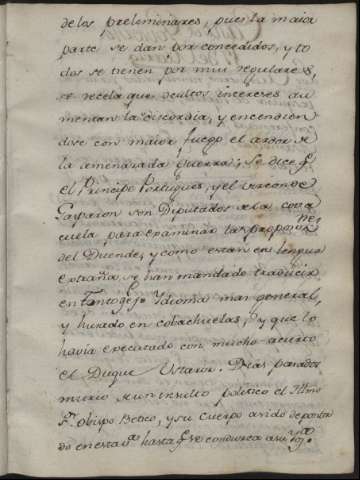 de los preliminares, pues la maior
parte se dan por concedidos, y to
dos se tienen por mui regulares,
se recela que ocultos intereses au
mentan la discordia, y encendien
dose con maior fuego el ardor de
la amenazada Guerra; Se dice q.
el Principe Portugues, y el Vizconde
son Diputados de la cova
chuela para examinar las proposicio
nes
del Duende, y como estan en lengua
extraña, se han mandado traducir
en Idioma mas general,
y husado en cobachuelas, y que lo
havia executado con mucho acierto
el Duque Ustariz. Dias pasados
murio de un insulto politico el Illmo
Sr. obispo Betico, y su cuerpo a sido deposita
do en esta hasta q. se conduzca a su